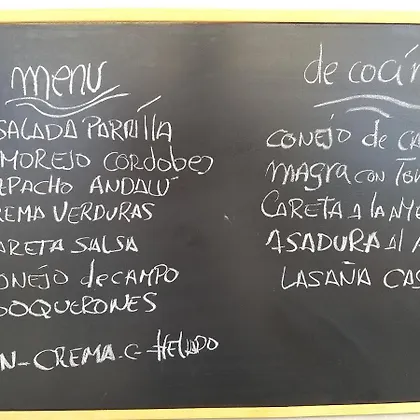 menu
SALADA PARRILLA
MOREJO CORDObES
PACHO ANDALU
REMA VERDURAS
ARETA SALSA
ONEJO de CAMPO
BOQUERONES
N-CREMA-C-HELADO
de cocin
CONEJO de CA
MAGRA CON TOM
CARETA A LA
ASADURA Al A
LASAÑA CAS